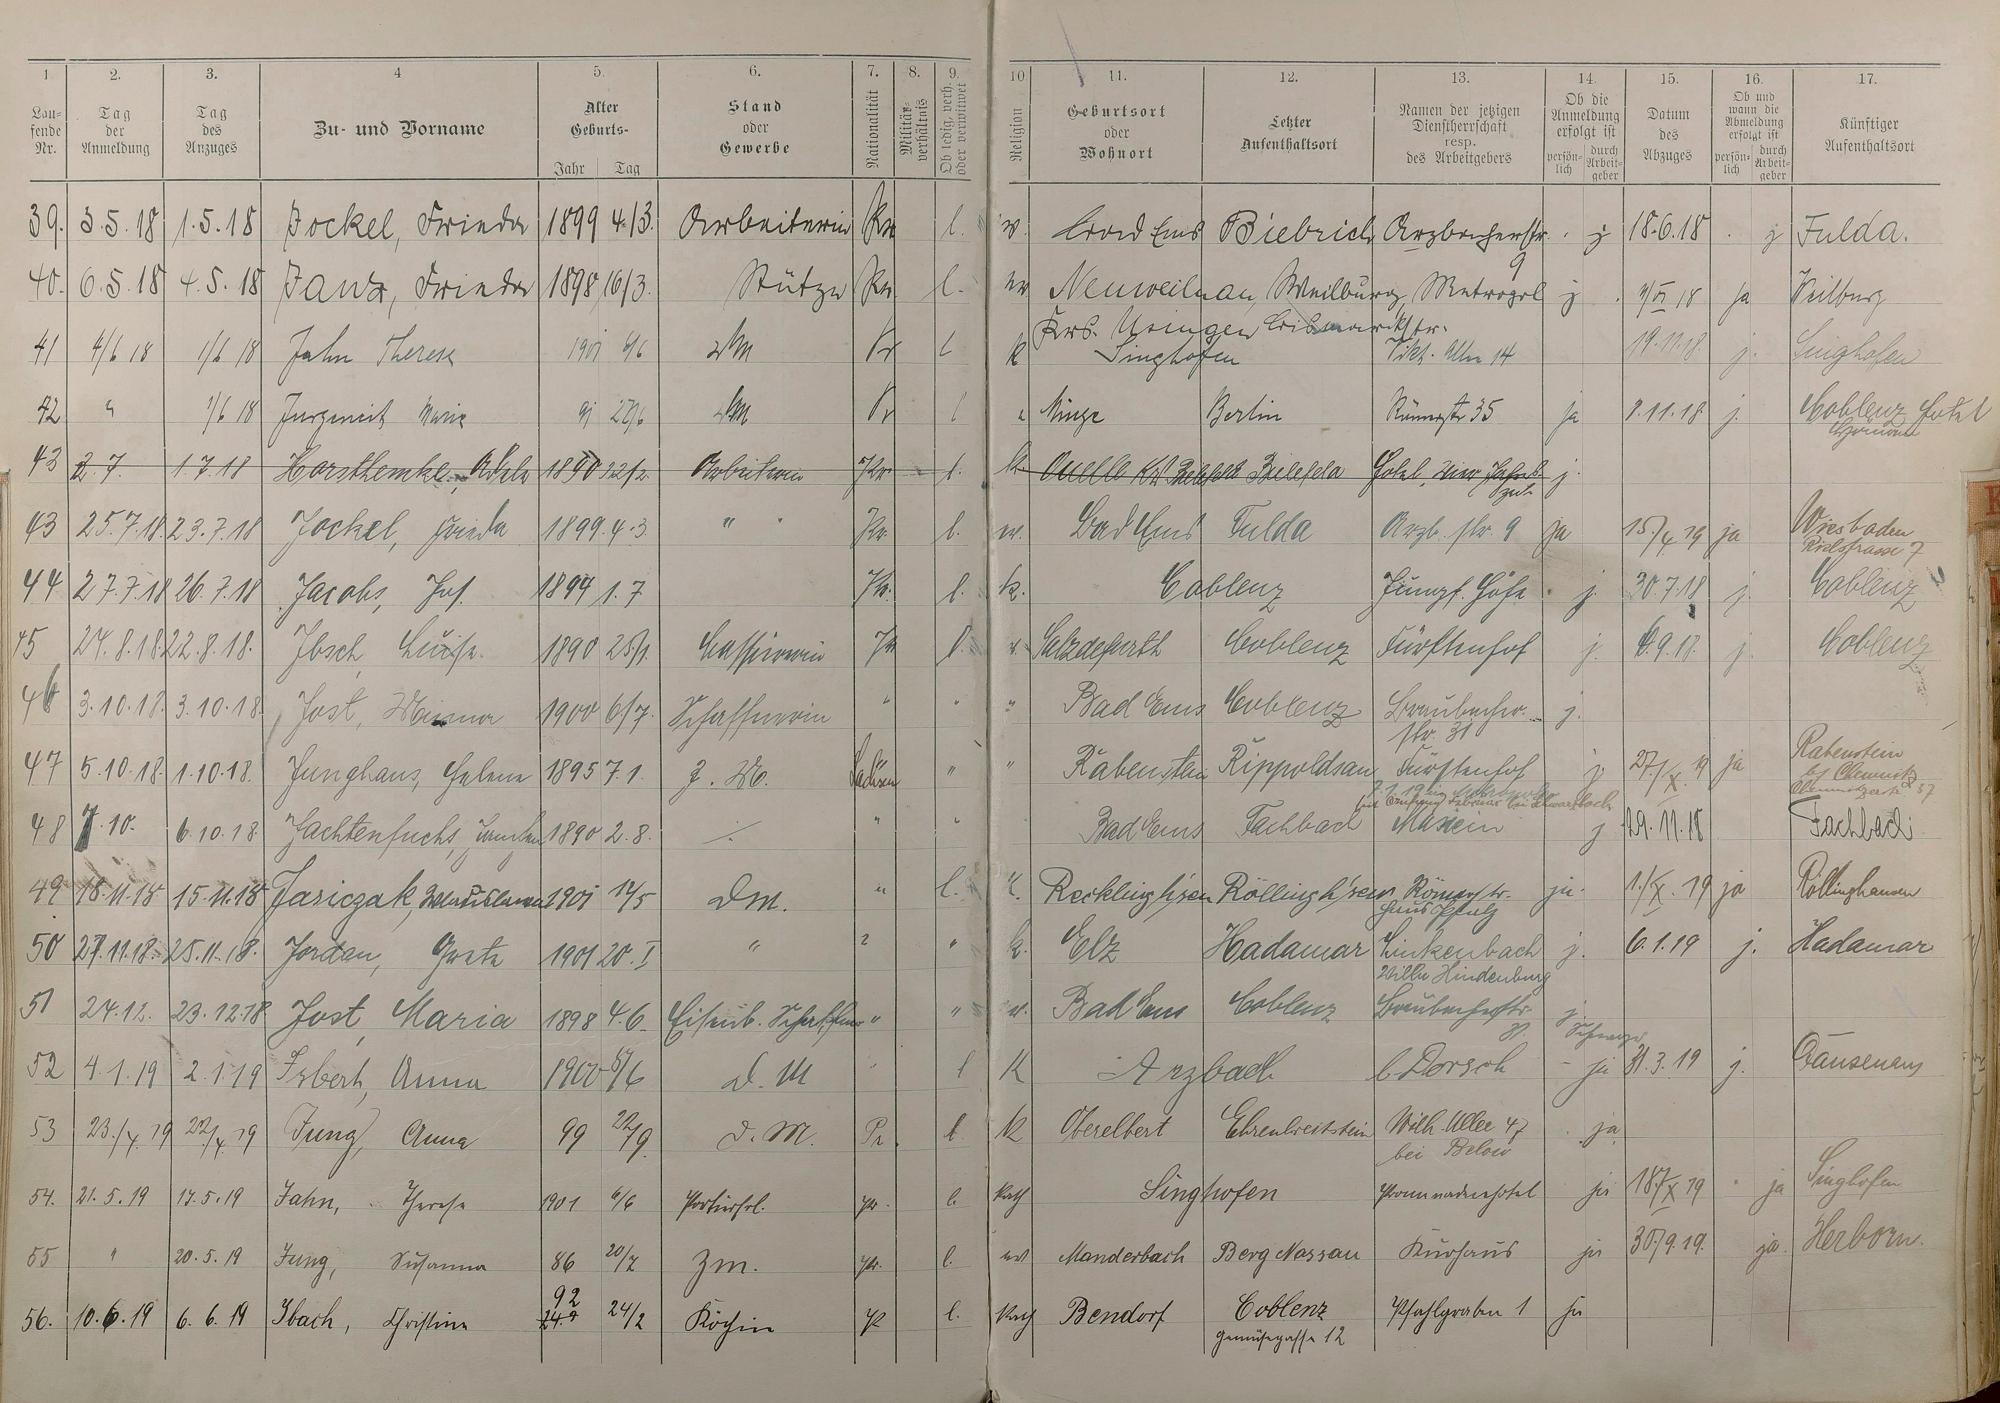 1 2. 3. 4 5. 6. 7. 8. 9. 10 11. 12. 13. 14. 15. 16. 17.
Lau-
fende
Nr.
Tag
der
Anmeldung
Tag
des
Anzuges
Zu- und Vorname
Alter
Geburts-
Jahr Tag
Stand
oder
Gewerbe
Nationalität
Militär-
verhältnis
Ob ledig, verh.
oder verwitwet
Religion
Geburtsort
oder
Wohnort
Letzter
Aufenthaltsort
Namen der jetzigen
Dienstherrschaft
resp.
des Arbeitgebers
Ob die
Anmeldung
erfolgt ist
persön-
lich
durch
Arbeit-
geber
Datum
des
Abzuges
Ob und
wann die
Abmeldung
erfolgt ist
persön-
lich
durch
Arbeit-
geber
Künftiger
Aufenthaltsort
39. 3.5.18 1.5.18 Jockel, Frieda 1899 4/3. Arbeiterin Pr. l. ev. Bad Ems Biebrich Arzbacherstr. 9 j 18.6.18 j Fulda.
40. 6.5.18 4.5.18 Frieda 1898 16/3. Stütze Pr. l. ev Neuweilnau, Weilburg, Metropol j 18 ja Weilburg
Krs. Usingen Bismarckstr.
41 4/6 18 1/6 18 Jahn Therese 1901 6/6 Pr l k Singhofen 14 19.11.18. j. Singhofen
42 " 1/6 18 Marie 91 27/6 Pr l Berlin Römerstr 35 ja 1.11.18 j. Coblenz Hotel
43 2.7. 1.7.18 Horsthemke, Adele 1890 22/2. Arbeiterin Pr. l. k. Quelle Krs. Bielefeld Bielefeld Hotel vier Jahres- j.
zeit.
43 25.7.18. 23.7.18 Jockel, Frieda 1899. 4.3. " " Pr. l. ev. Bad Ems Fulda Arzb. str. 9 ja 15/4 19 ja Wiesbaden
7
44 27.7.18 26.7.18 Jacobs, Jos. 1899 1.7 Pr. l. k. Coblenz Jungf. Höhe j. 30.7.18 j. Coblenz
45 24.8.18. 22.8.18. Ibsch, Luise. 1890 25/1. Cassiererin Pr l. Salzdefurth Coblenz Fürstenhof j. 6.9.18. j. Coblenz
46 3.10.18. 3.10.18. Jost, 1900 6/7. Schaffnerin " " " Bad Ems Coblenz Braubacher- j.
str. 31
47 5.10.18. 1.10.18. Junghans, Helene 1895 7.1. Z. M. Sachsen " " Rabenstein Rippoldsau Fürstenhof j 27./X. 19 ja Rabenstein
b/ Chemnitz
37
48 7.10. 6.10.18. Jachtenfuchs, 1890 2.8. " " Bad Ems Fachbach j 29.11.18 Fachbach
49 18.11.18 15.11.18 Jasiczak, 1901 " l. Recklingh'sen Röllingh'sen Römerstr. ja. 1./X. 19 ja Röllinghausen
Haus Pfalz
50 27.11.18. 25.11.18. Jordan, Grete 1901 20.I " " k. Elz Hadamar Linkenbach j. 6.1.19 j. Hadamar
Villa Hindenburg
51 24.12. 23.12.18 Jost, Maria 1898 4.6. Eisenb. Schaffner " " ev. Bad Ems Coblenz Braubacherstr. j.
52 4.1.19 2.1.19 Anna 1900 D. M " l K Arzbach b Dorsch – ja 31.3.19 j. Dausenau
53 23./4 19 22/4 19 Jung, Anna 99 22/9. D. M. Pr. l. K Oberelbert Ehrenbreitstein Wilh. Allee 47 ja
bei Below
54. 21.5.19 17.5.19 Jahn, Therese 1901 6/6 pr. l. kath Singhofen Promenadenhotel ja 18./X 19 ja Singhofen
55 " 20.5.19 Jung, Susanna 86 20/7 Zm. pr. l. ev Manderbach Berg Nassau Kurhaus ja 30./9.19. ja. Herborn.
92
56. 10.6.19 6.6.19 Ibach, Christine 24/2 Köchin pr l. kath Bendorf Coblenz Pfahlgraben 1 ja
Gemüsegasse 12